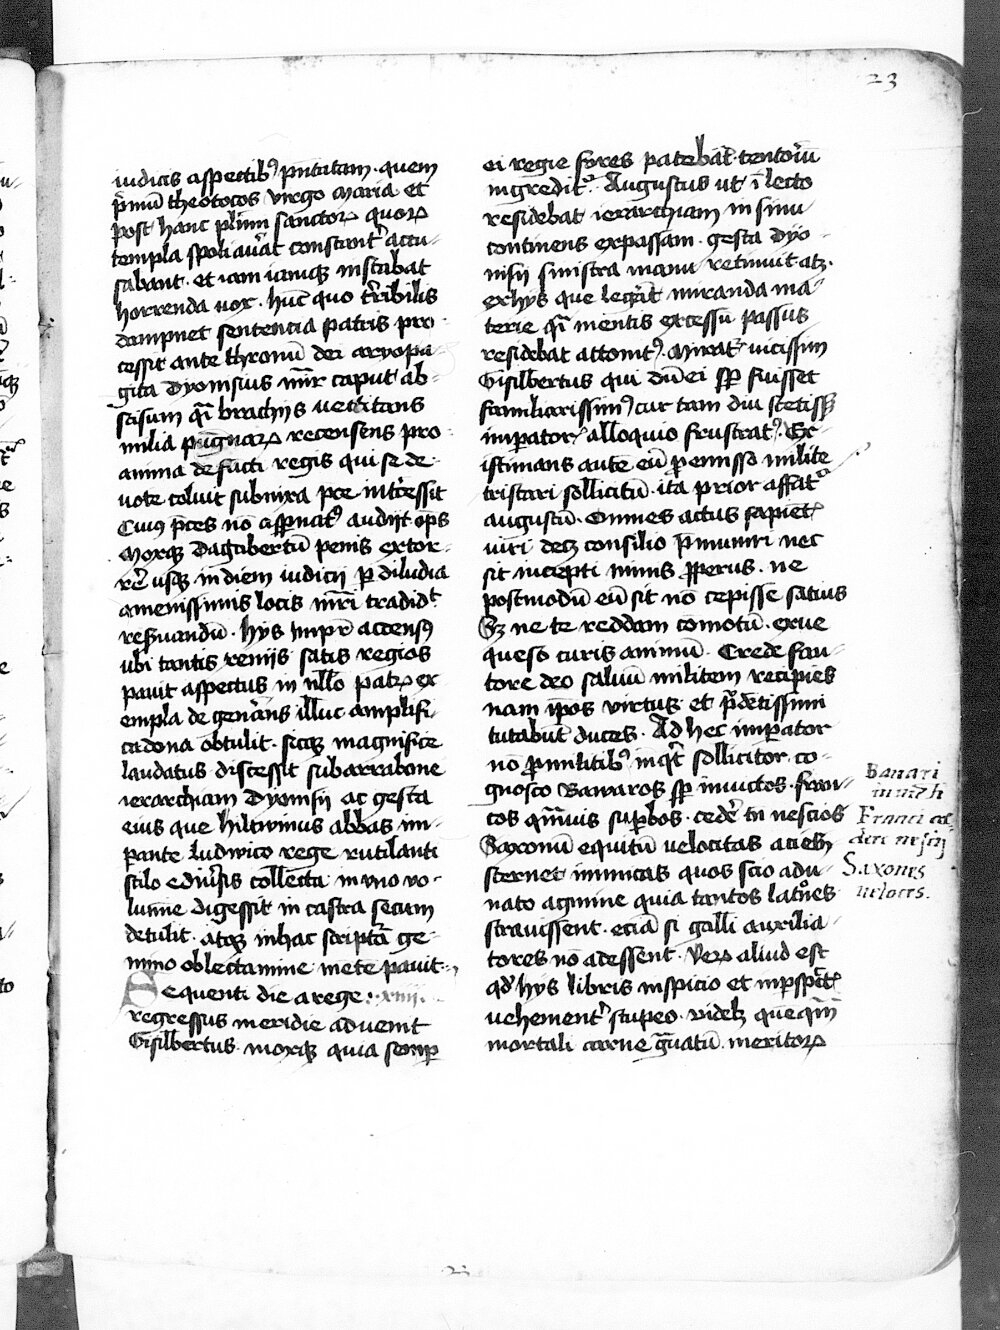 23
iudicis aspectibꝰ pn̄tatam · quem
p̄mū theotocos virgo maria et
post hanc plīmi sanctoꝝ quoꝝ
templa spoliauᷓat constant᷑ accu-
sabant · et iam iamqꝫ instabat
horrenda uox · hūc quo t᷑ribilis
dampnet sentencia patris pro-
cessit ante thronū dei aryopa-
gita Dyonisius mr̄ caput ab-
scisum qͣi brachijs uectitans
milia pugnaꝝ recensens pro
anima defūcti regis qui se de-
uote coluit submixa pce int᷑cessit
Cuiꝰ pces nō asp̄natꝰ audijt op̄s
Moxqꝫ dagabertū penis extor-
rē usqꝫ in diem iudicij ꝑ diludia
amenissimis locis mr̄i tradidᷓt
reẜuandū · hys imꝑr̄ accensꝰ
ubi tantis xenijs satis regios
pauit aspectus in nll̄o patꝝ ex-
empla degenᷓans ill̄uc amplifi-
ca dona obtulit · sicqꝫ magnifice
laudatus discessit sub arrabone
ierarchiam Dyonisij ac gesta
eius que hilwinus abbas im-
pante Ludwico rege rutilanti
stilo e diuᷓsis collecta in vno vo-
lumīe digessit in castra secum
detulit · atqꝫ in hac scriptᷓa ge-
mino oblectamine mētē pauit ·
Sequenti die a rege · xiiij ·
regressus meridie aduenit
Gisilbertus · moxqꝫ quia semꝑ
ei regie fores patebāt · tentoriū
ingredit᷑ · Augustus ut ī lecto
residebat ierarchiam in sinu
continens expassam · gesta dyo-
nisij sinistra manu retinuit atqꝫ ·
ex hys que legᷓit miranda ma-
terie qͣi mentis excessū passus
residebat attonitꝰ · Mirat᷑ uicissim
Gisilbertus qui dū ei sꝑ fuisset
familiarissimꝰ cur tam diu stetisset
imꝑatorꝭ alloquio frustratꝰ · Ex-
istimans autē eū ꝓ emisso milite
tristari sollicitū · ita prior affat᷑
augustū · Omnes actus sapiet᷑
viri decꝫ consilio p̄muniri nec
sit incepti nimis ꝓperus · ne
postmodū eū sit nō cepisse satius
Sꝫ ne te reddam comotū · exue
queso curis animū · Crede fau-
tore deo saluū militem recipies
nam ip̄os virtus et p̄dētissimi
tutabūt duces · Ad hec imꝑator
nō ꝓ militibꝰ inqͥt sollicitor co-
gnosco Bawaros sꝑ inuictos · fran-
cos qͣmuis suꝑbos · cedᷓe tn̄ nescios
Saxonū equitū velocitas aciem
sternet inimicas quos scio adu-
nato agmine quia tantos latōes
strauissent · eciā si galli auxilia-
tores nō adessent · Veꝝ aliud est
qd̓ hys libris inspicio et inꝑspᷓcte
uehement᷑ stupeo · videlꝫ quequā
mortali carne gͣuatū · meritoꝝ
Bauari
inuicti
Franci ce-
dere nescij
Saxones
ueloces.